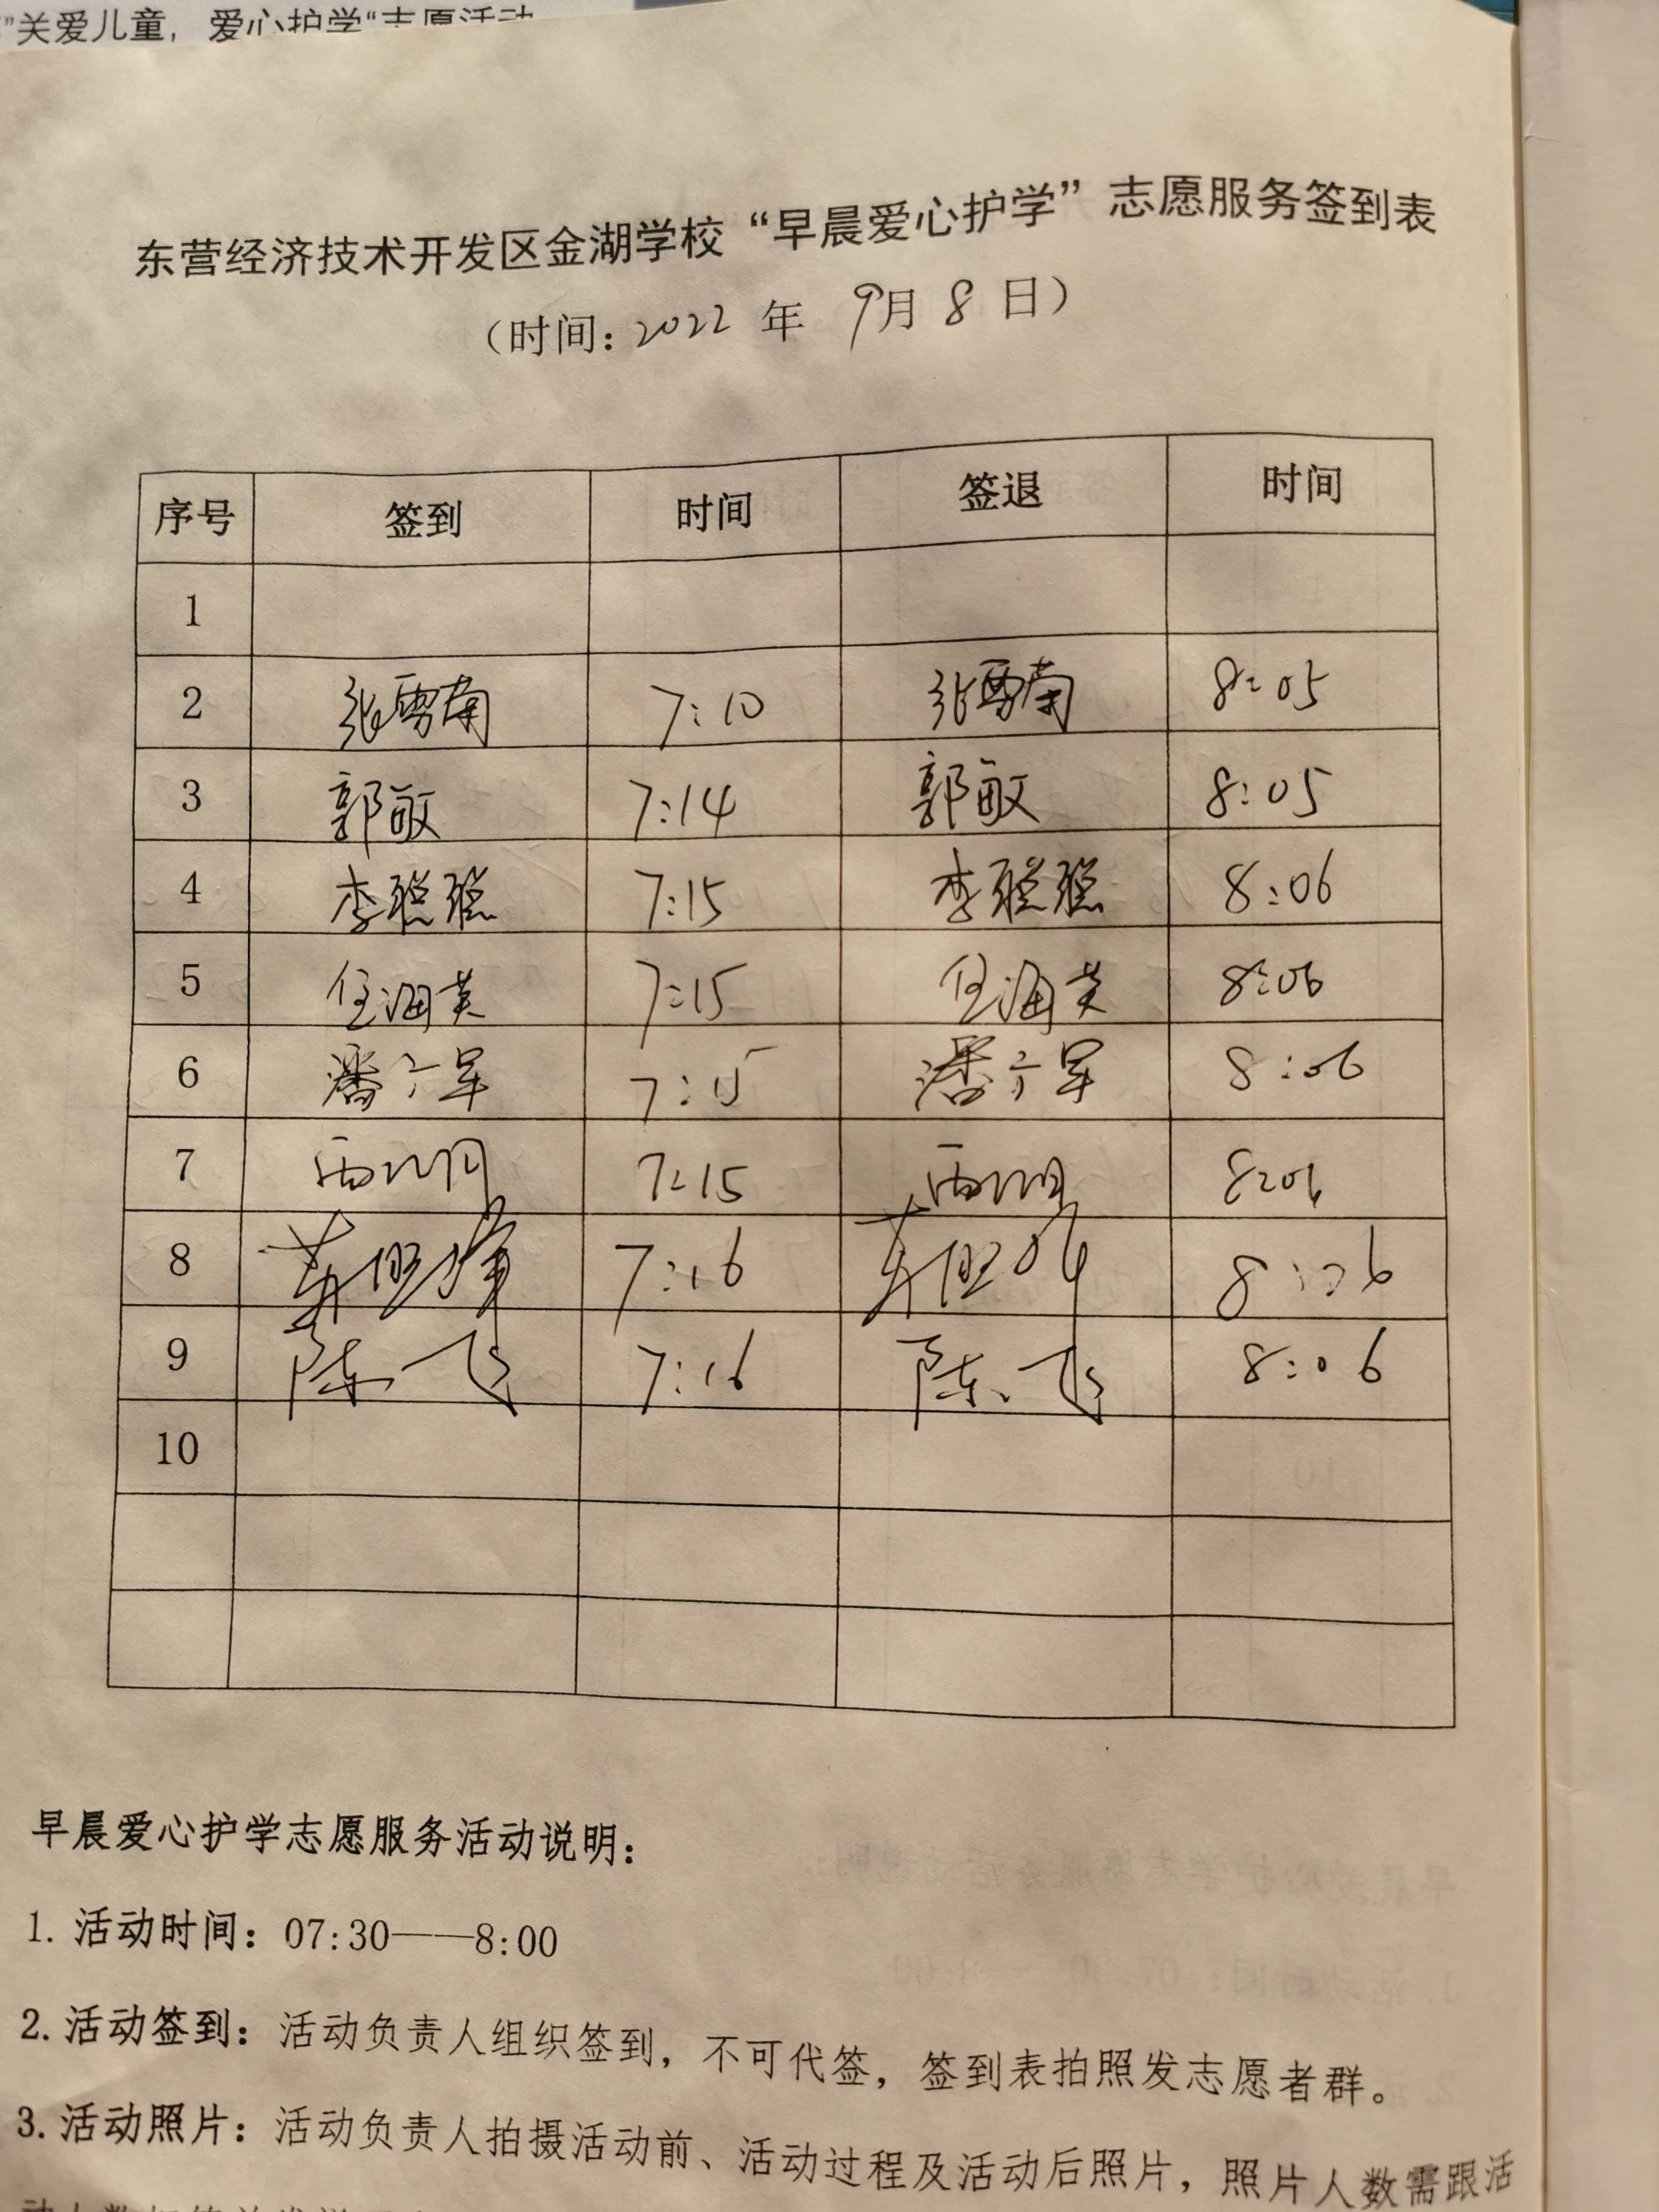 ”关爱儿童，爱心护学“志愿活动
东营经济技术开发区金湖学校“早晨爱心护学”志愿服务签到表
（时间：2022年 9月 8日）
序号 签到 时间 签退 时间
1
2 张雪南 7:10 张雪南 8:05
3 郭敏 7:14 郭敏 8:05
4 李聪聪 7:15 李聪聪 8:06
5 任海英 7:15 任海英 8:06
6 7:15 8:06
7 7:15 8:06
8 7:16 8:06
9 陈飞 7:16 陈飞 8:06
10
早晨爱心护学志愿服务活动说明：
1. 活动时间：07:30——8:00
2. 活动签到：活动负责人组织签到，不可代签，签到表拍照发志愿者群。
3. 活动照片：活动负责人拍摄活动前、活动过程及活动后照片，照片人数需跟活